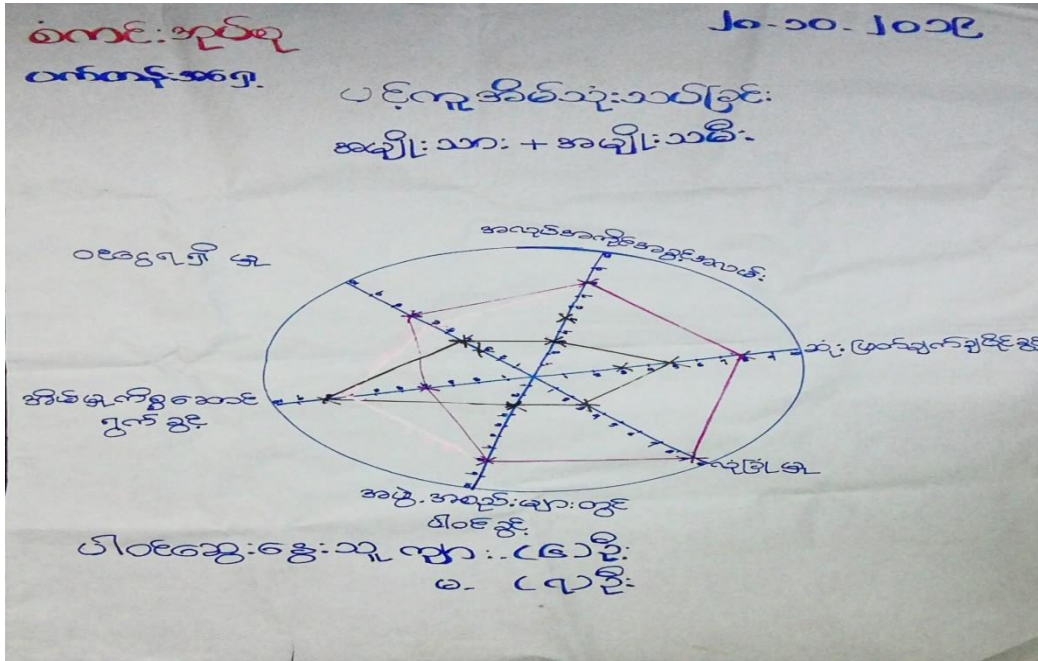 စံကင်းအုပ်စု
၂၀-၁၀-၂၀၁၉
ပက်တန်းအရှေ့
ပင့်ကူအိမ်သုံးသပ်ခြင်း
အမျိုးသား + အမျိုးသမီး
အလုပ်အကိုင်အခွင့်အလမ်း
ဝင်ငွေရရှိမှု
ဆုံးဖြတ်ချက်ချနိုင်ခွင့်
အိမ်မှုကိစ္စဆောင်
ရွက်ခွင့်
လုံခြုံမှု
အဖွဲ့အစည်းများတွင်
ပါဝင်ခွင့်
ပါဝင်ဆွေးနွေးသူ ကျား-(၆)ဦး
မ- (၇)ဦး